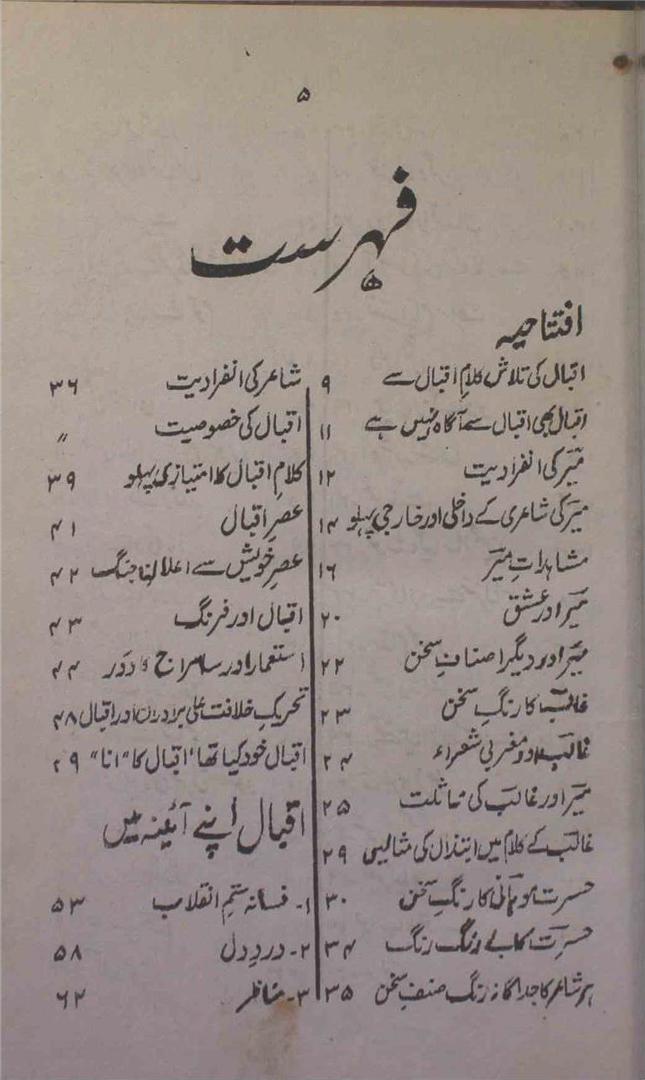 ۵
فہرست
افتتاحیہ
اقبال کی تلاش کلامِ اقبال سے ۹
اقبال بھی اقبال سے آگاہ نہیں ہے ۱۱
میر کی انفرادیت ۱۲
میر کی شاعری کے داخلی اور خارجی پہلو ۱۴
مشاہداتِ میر ۱۶
میر اور عشق ۲۰
میر اور دیگر اصنافِ سخن ۲۲
غالب کا رنگِ سخن ۲۳
غالب اور مغربی شعراء ۲۴
میر اور غالب کی مماثلت ۲۵
غالب کے کلام میں ابتذال کی مثالیں ۲۹
حسرت موہانی کا رنگِ سخن ۳۰
حسرت کا بے رنگ رنگ ۳۴
ہر شاعر کا جداگانہ رنگ صنفِ سخن ۳۵
شاعر کی انفرادیت ۳۶
اقبال کی خصوصیت ״
کلامِ اقبال کا امتیازی پہلو ۳۹
عصرِ اقبال ۴۱
عصرِ خویش سے اعلانِ جنگ ۴۲
اقبال اور فرنگ ۴۳
استعمار اور سامراج کا دَور ۴۴
تحریکِ خلافت علی برادران اور اقبال ۴۸
اقبال خود کیا تھا، اقبال کا "انا" ۲۹
اقبال اپنے آئینہ میں
۱۔ فسانۂ ستمِ انقلاب ۵۳
۲۔ دردِ دل ۵۸
۳۔ مناظر ۶۲